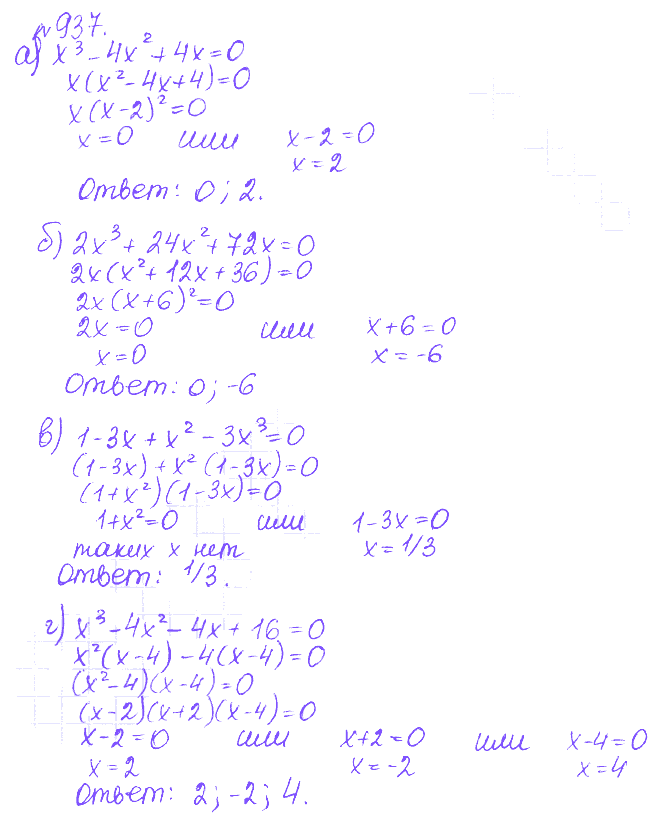 №937.
а) x³ - 4x² + 4x = 0
x(x² - 4x + 4) = 0
x(x-2)² = 0
x = 0 или x - 2 = 0
x = 2
Ответ: 0; 2.
б) 2x³ + 24x² + 72x = 0
2x(x² + 12x + 36) = 0
2x(x+6)² = 0
2x = 0 или x + 6 = 0
x = 0 x = -6
Ответ: 0; -6
в) 1 - 3x + x² - 3x³ = 0
(1-3x) + x²(1-3x) = 0
(1+x²)(1-3x) = 0
1+x² = 0 или 1-3x = 0
таких x нет x = 1/3
Ответ: 1/3.
г) x³ - 4x² - 4x + 16 = 0
x²(x-4) - 4(x-4) = 0
(x²-4)(x-4) = 0
(x-2)(x+2)(x-4) = 0
x-2 = 0 или x+2 = 0 или x-4 = 0
x = 2 x = -2 x = 4
Ответ: 2; -2; 4.